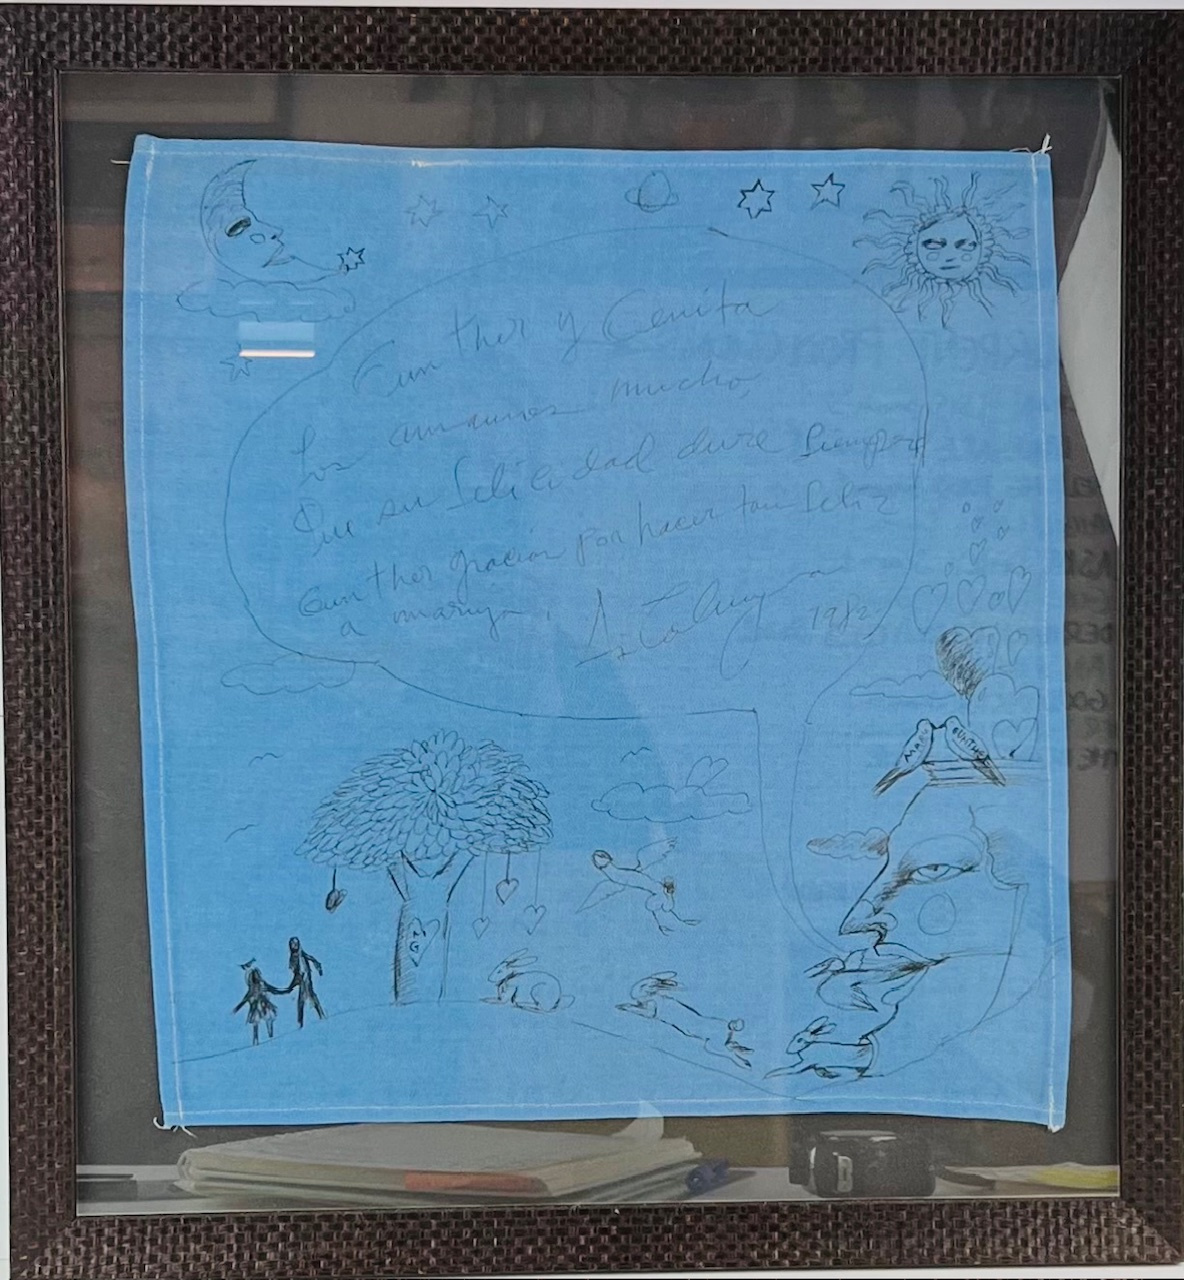 Gunther y Cenita
los amamos mucho,
Que su felicidad dure siempre
Gunther gracias por hacer tan feliz
a maruja,
1982
MARU GUNTHER
M
G
B